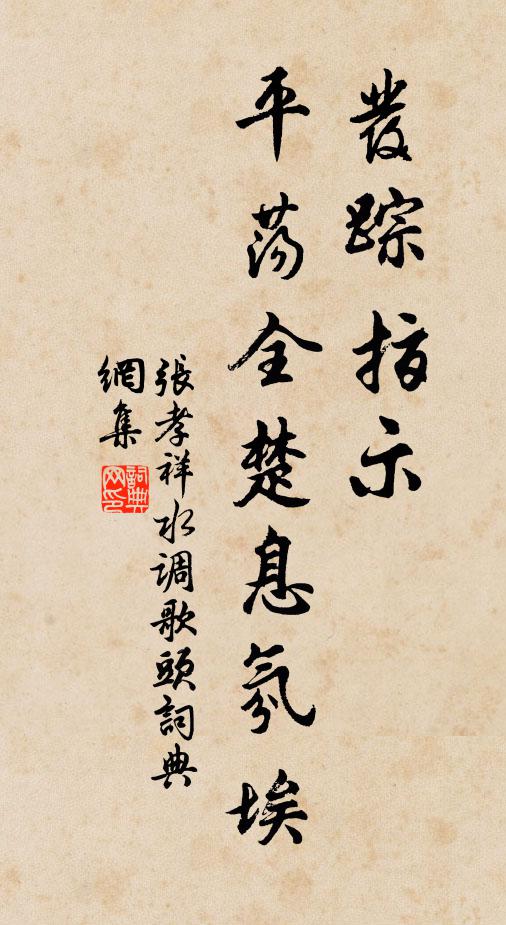 發踪指示
平荡全楚息氛埃
張孝祥水调歌頭詞典
網集
詞典
网印